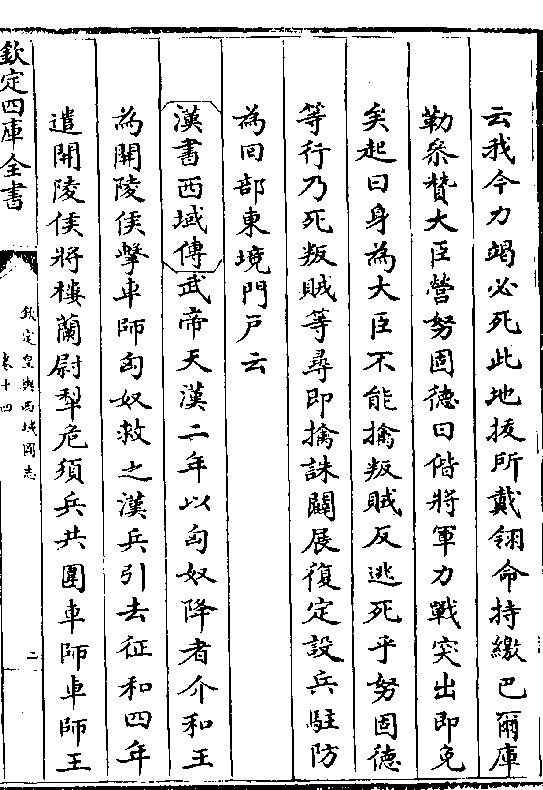 云我今力竭必死此地拔所戴翎命持繳巴爾庫
勒叅賛大臣營努固德曰偕將軍力戰突出即免
矣起曰身為大臣不能擒叛賊反逃死乎努固德
等行乃死叛賊等尋即擒誅闢展復定設兵駐防
為回部東境門戸云
漢書西域傳武帝天漢二年以匈奴降者介和王
為開陵侯擊車師匈奴救之漢兵引去征和四年
遣開陵侯將樓蘭尉犁危須兵共圍車師車師王
欽定四庫全書
欽定皇輿西域圖志
卷十四
二